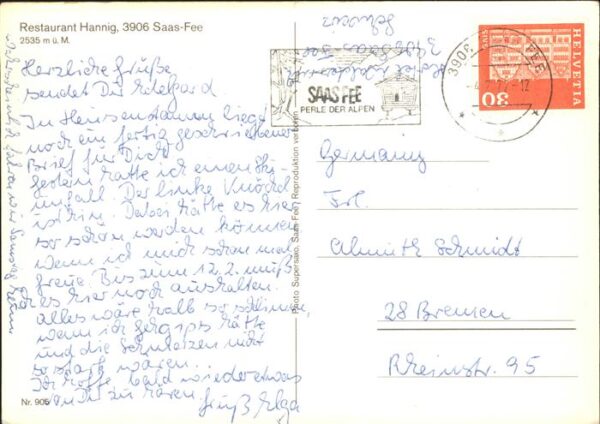 Restaurant Hannig, 3906 Saas-Fee
2535 m ü. M.
Herzliche Grüße
sendet Dir
In Heusenstamm liegt
noch ein fertig geschriebener
Brief für Dich
gestern hatte ich einen Ski-
unfall. Der linke Knöchel
ist hin. Dabei hätte es hier
so schön werden können
wenn ich mich schon mal
freue. Bis zum 12.2. muß
ich es hier noch aushalten.
Alles wäre halb so schlimm,
wenn ich Gehgips hätte
und die Schmerzen nicht
so stark wären...
Ich hoffe bald wieder etwas
von Dir zu hören.
Gruß Elga
Nr. 905
Schweiz
3906 Saas-Fee
SAAS FEE
PERLE DER ALPEN
3906 FEE
HELVETIA
30
Photo Supersaxo, Saas-Fee / Reproduktion verboten
Germany
Frl.
Almuth Schmidt
28 Bremen
Rheinstr. 95